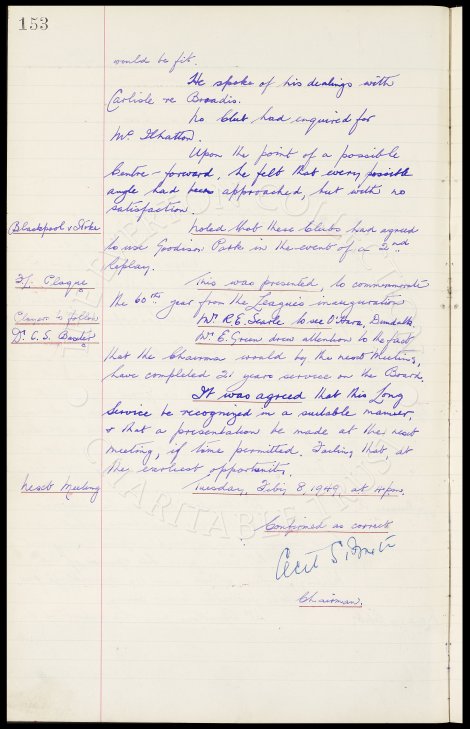 153
would be fit.
He spoke of his dealings with
Carlisle re Broadis.
No Club had inquired for
Mr.
Upon the point of a possible
Centre-forward, he felt that every possible
angle had been approached, but with no
satisfaction.
Blackpool v Stoke
Noted that these Clubs had agreed
to use Goodison Park in the event of a 2nd
Replay.
F.L. Plaque
This was presented, to commemorate
the 60th year from the League's inauguration
Players to follow
Mr. R.E. Searle to see O'Hara, Dundalk.
Dr. C. S. Baxter
Mr. E. Green drew attention to the fact
that the Chairman would by the next Meeting,
have completed 21 years service on the Board.
It was agreed that this Long
Service be recognized in a suitable manner,
& that a presentation be made at the next
meeting, if time permitted. Failing that, at
the earliest opportunity.
Next Meeting
Tuesday, Feb'y 8, 1949, at 4 pm.
Confirmed as correct
Cecil S.
Chairman.
CHARITABLE TRUST